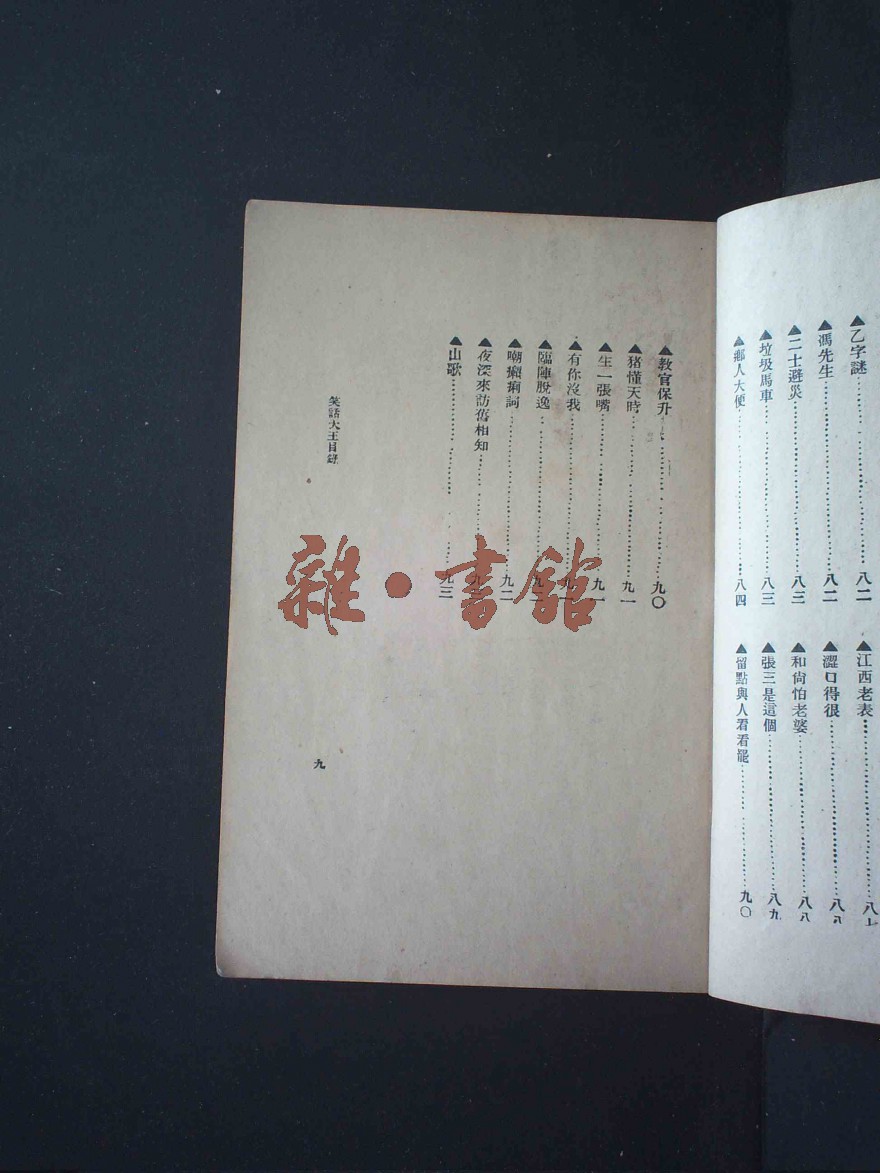 ▲乙字謎……八二
▲馮先生……八二
▲二士避災……八三
▲垃圾馬車……八三
▲鄉人大便……八四
▲江西老表……八七
▲澀口得很……八八
▲和尙怕老婆……八八
▲張三是這個……八九
▲留點與人看看罷……九〇
▲敎官保升……九〇
▲猪懂天時……九一
▲生一張嘴……九一
▲有你沒我……九一
▲臨陣脫逸……九二
▲嘲癩痢詞……九二
▲夜深來訪舊相知……
▲山歌……九三
笑話大王目錄
九
雜·書館